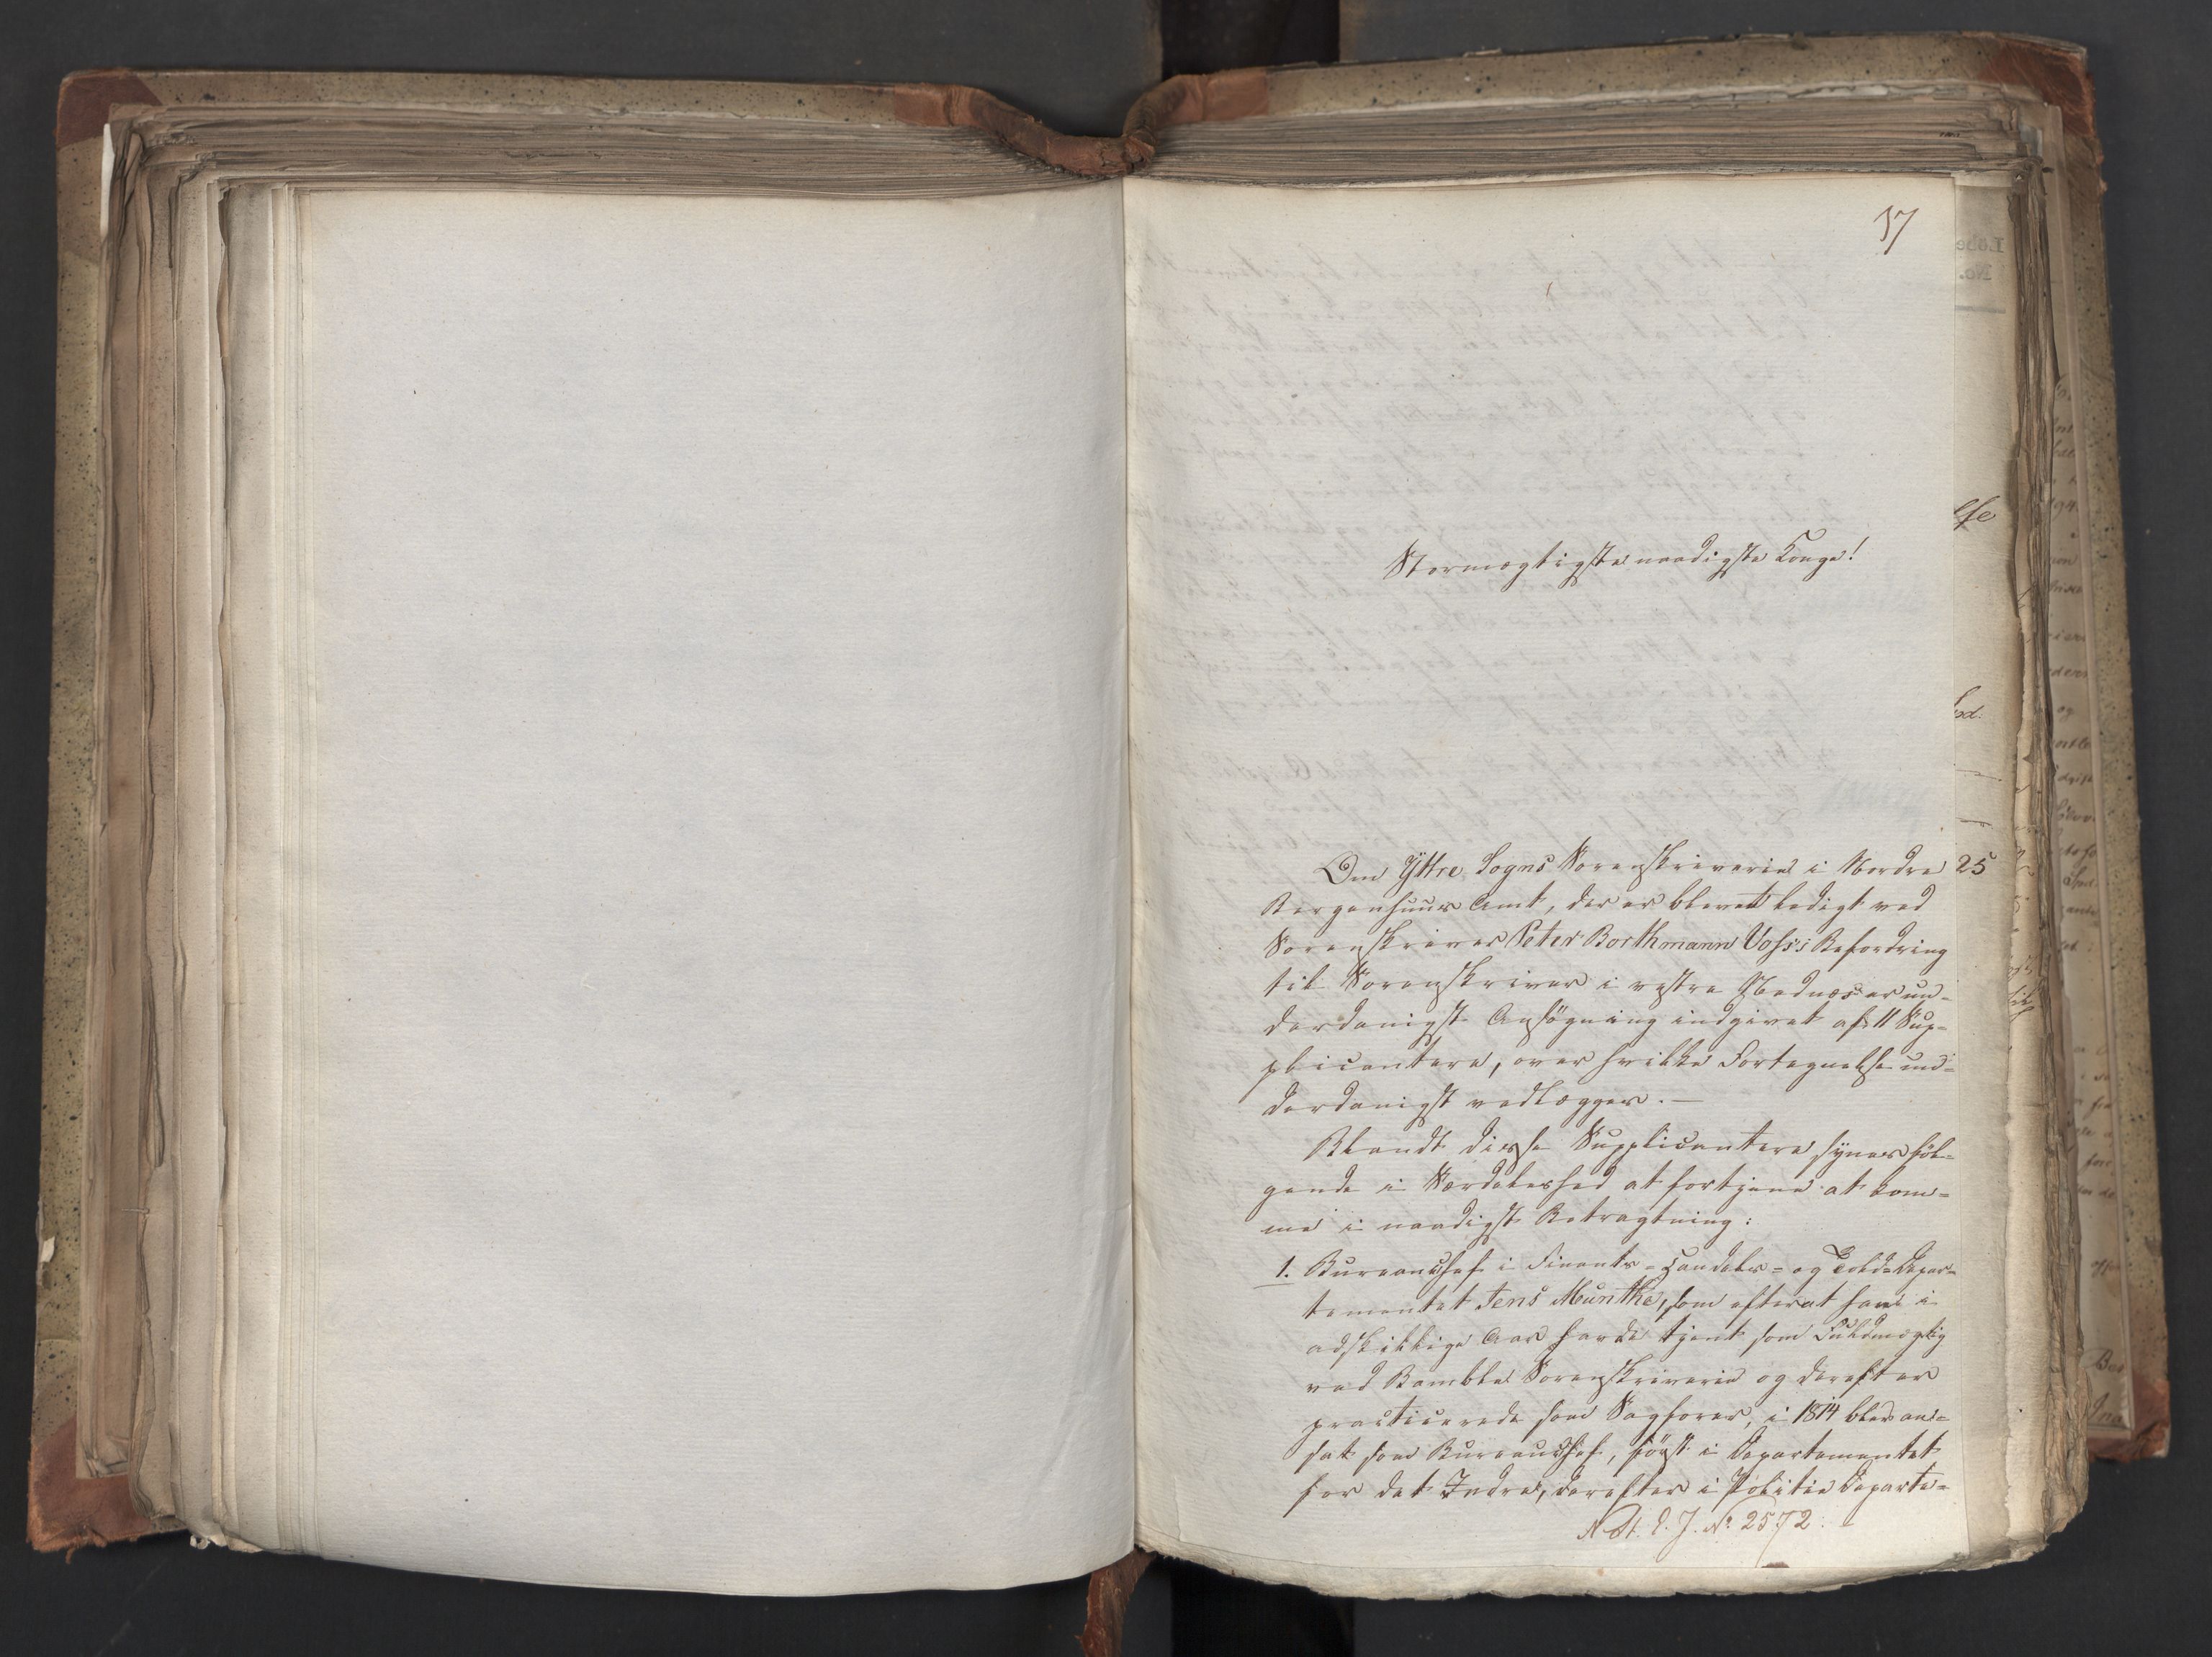 37
Stormægtigste naadigste Konge!
Om Yttre Sogns Sorenskriverie i Nordre
Bergenhuus Amt, der er blevet ledigt ved
Sorenskriver Peter Borthmann Voss's Befordring
til Sorenskriver i vestre Nednæs er un-
derdanigst Ansøgning indgivet af 11 Sup-
plicantere, over hvilke Fortegnelse un-
derdanigst vedlægges. —
Blandt disse Supplicantere synes föl-
gende i Særdeleshed at fortjene at kom-
me i naadigst Betragtning:
1. Bureauchef i Finants- Handels- og Told-Depar-
tementet Jens Munthe, som efterat have i
adskillige Aar havde tjent som Fuldmægtig
ved Bamble Sorenskriverie og derefter
practicerede som Sagfører, i 1814 blev an-
sat som Bureauchef, først i Departementet
for det Indre, derefter i Politie Departe-
No. 2572.
25